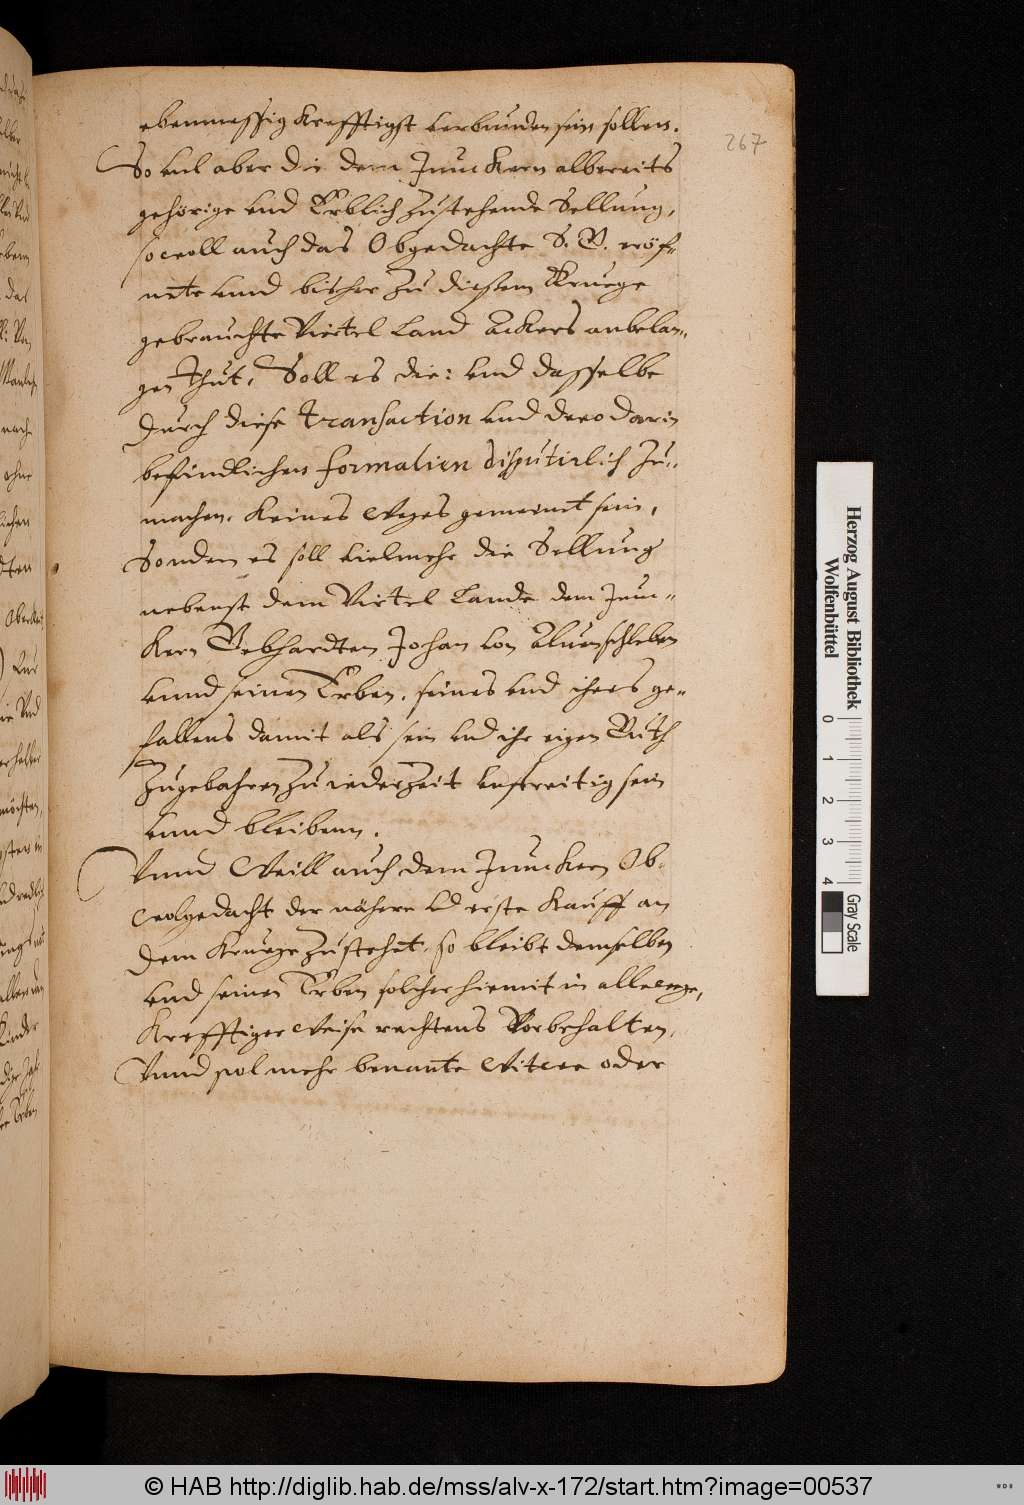 ebenmessig Krefftigst verbunden sein sollen.
267
So viel aber die dem Junckern albereits
gehörige vnd Erblich zustehende Sellung,
sowoll auch das Obgedachte S. G. eröf-
nete vnnd bisher zu diesem Kruege
gebrauchte Viertel Land Ackers anbelan-
gen thut, Soll es die: vnd dasselbe
durch diese transaction vnd dero darin
befindlichen formalien disputirlich zu-
machen, Keines weges gemeint sein,
Sondern es soll vielmehr die Sellung
nebenst dem Virtel Lande dem Jun-
kern Gebhardten Johan von Aluenschleben
vnnd seinen Erben, seines vnd ihres ge-
fallens damit als sein vnd ihr eigen Guth
zugebahren zu iederzeit vnstreitig sein
vnnd bleibenn.
Vnnd Weill auch dem Junckern Ob-
wolgedacht der nähere vnd erste Kauff an
dem Kruege zustehet, so bleibt demselben
vnd seinen Erben solcher hiemit in alle wege,
Krefftiger Weise rechtens Vorbehalten,
Vnnd sol mehr benante Witwe oder
Herzog August Bibliothek
Wolfenbüttel
0 1 2 3 4
Gray Scale
© HAB http://diglib.hab.de/mss/alv-x-172/start.htm?image=00537